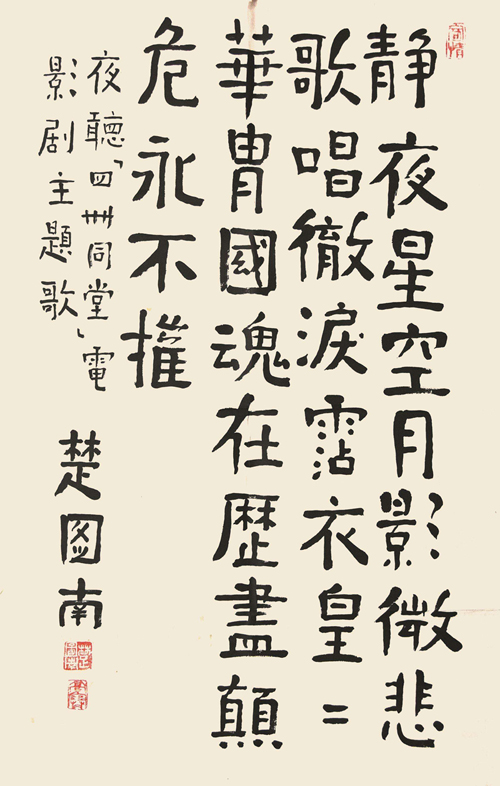 静夜星空月影微悲
歌唱徹淚霑衣皇=
華胄國魂在歷盡顛
危永不摧
夜聽「四卅同堂」電
影剧主題歌
楚圖南